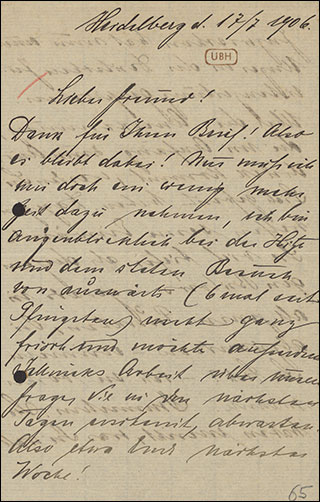 Heidelberg d. 17/7 1906.
UBH
Lieber Freund!
Dank für Ihren Brief! Also
es bleibt dabei! Nur muß ich
mir doch ein wenig mehr
Zeit dazu nehmen, ich bin
augenblicklich bei der Hitze
und dem steten Besuch
von auswärts (6 mal seit
Pfingsten) nicht ganz
frisch und möchte außerdem
Arbeit über
frage, die in den nächsten
Tagen abwarten.
Also etwa Ende nächster
Woche!
65